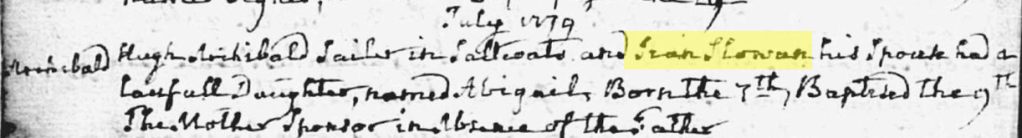 July 1779
Archibald Hugh Archibald Sailor in Saltcoats and Jean Stowan his Spouse had a
lawfull Daughter, named Abigail, Born the 7th, Baptised the 9th
The Mother Sponsor in Absence of the Father